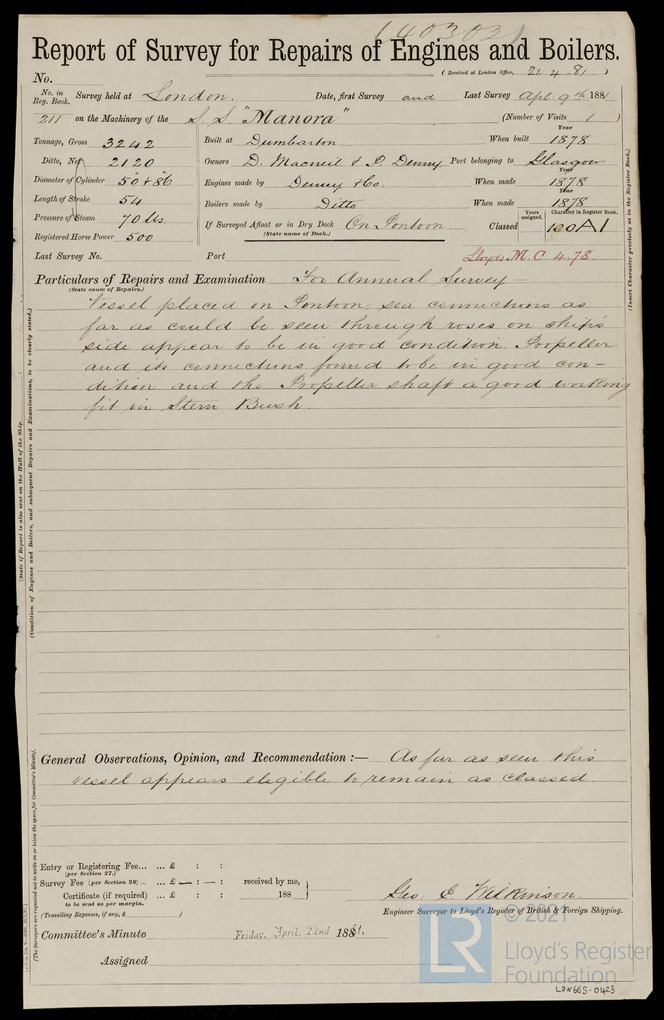 (40303)
Report of Survey for Repairs of Engines and Boilers.
(Received at London Office, 21.4.81)
No.
No. in Reg. Book. Survey held at London. Date, first Survey and Last Survey Apl. 9th 1881
211 on the Machinery of the S.S. "Manora" (Number of Visits 1)
Tonnage, Gross 3242
Ditto, Net 2120
Diameter of Cylinder 50" & 86
Length of Stroke 54
Pressure of Steam 70 lbs.
Registered Horse Power 500
Built at Dumbarton When built Year 1878
Owners D. Macneil & P. Denny Port belonging to Glasgow
Engines made by Denny & Co. When made Year 1878
Boilers made by Ditto When made Year 1878
If Surveyed Afloat or in Dry Dock On Pontoon Classed Years assigned. Character in Register Book. 100A1
(State name of Dock.)
Last Survey No. Port Lloyds M.C. 4.78.
Particulars of Repairs and Examination For Annual Survey
(State cause of Repairs.)
Vessel placed on Pontoon, sea connections as
far as could be seen through roses on ship's
side appear to be in good condition. Propeller
and its connections found to be in good con-
dition and the Propeller shaft a good working
fit in Stern Bush.
(Insert Character precisely as in the Register Book.)
(State if Report is also sent on the Hull of the Ship
(Condition of Engines and Boilers, and subsequent Repairs and Examinations, to be clearly stated.)
General Observations, Opinion, and Recommendation :— As far as seen this
vessel appears eligible to remain as classed.
(The Surveyors are requested not to write on or below the space for Committee's Minute).
Entry or Registering Fee... ... £ : :
(per Section 27.)
Survey Fee (per Section 28) ... ... £ — : — :
received by me,
Certificate (if required) ... £ : : 188
to be sent as per margin.
(Travelling Expenses, if any, £ )
Geo. C. Wilkinson.
Engineer Surveyor to Lloyd's Register of British & Foreign Shipping.
Committee's Minute Friday, April, 22nd 1881.
Assigned
LR
© 2021
Lloyd's Register
Foundation
LDN665-0423